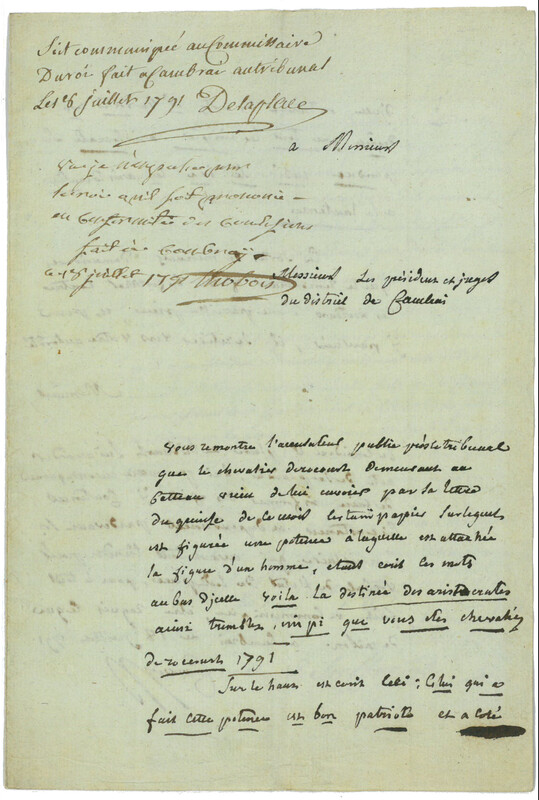 Soit communiquée au Commissaire
Du roi fait a Cambrai au tribunal
Le 16 juillet 1791 Delaplace
a Messieurs
vu je n'empeche pour
le roi qu'il soit prononcé
en conformité des conclusions
fait à Cambray
ce 16 juillet 1791 Thobois
Messieurs Les présidens et juges
du district de Cambrai
vous remontre l'accusateur public près le tribunal
que le chevalier derocourt demeurant au
Catteau vien de lui envoier par sa lettre
du quinse de ce mois papier sur lequel
est figurée une potence à laquelle est attachée
la figure d'un homme, etant ecrit ces mots
au bas d'icelle voila la destinée des aristocrates
ainsi tremblez, que vous etes chevalier
de rocourt 1791
Sur le haut est ecrit ceci; Celui qui a
fait cette potence est bon patriote et a coté